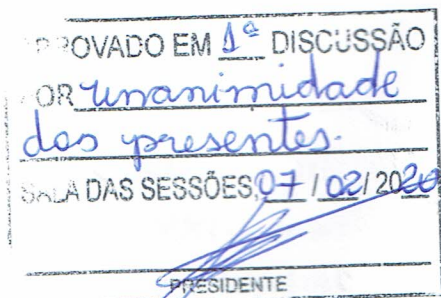 APROVADO EM 1ª DISCUSSÃO
POR unanimidade
dos presentes.
SALA DAS SESSÕES, 07 / 02 / 2020
PRESIDENTE